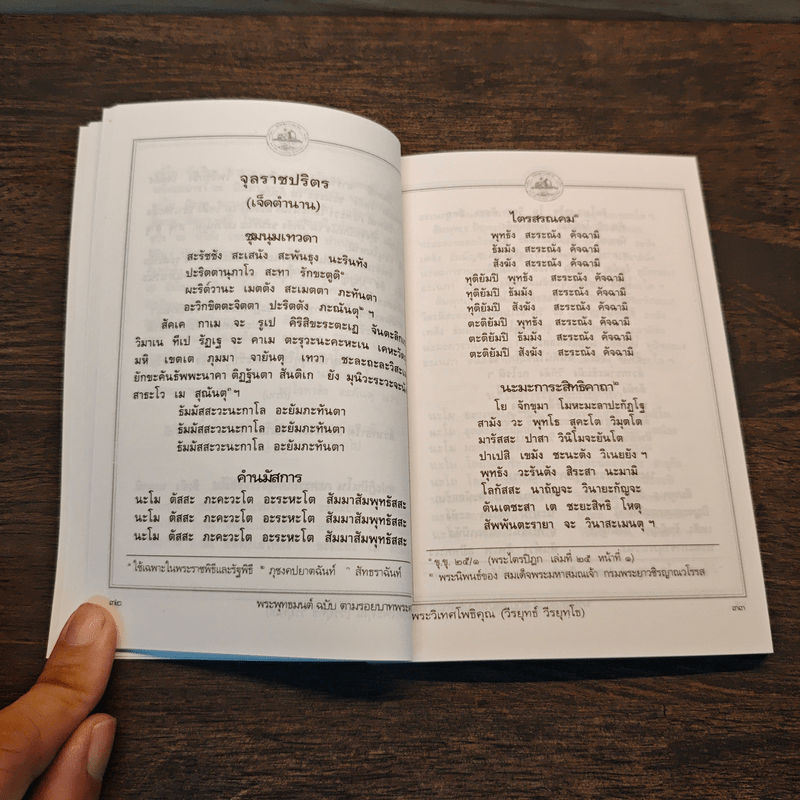 จุลราชปริตร
(เจ็ดตำนาน)
ชุมนุมเทวดา
สะรัชชัง สะเสนัง สะพันธุง นะรินทัง
ปะริตตานุภาโว สะทา รักขะตูติ๑
ผะริต๎วานะ เมตตัง สะเมตตา ภะทันตา
อะวิกขิตตะจิตตา ปะริตตัง ภะณันตุ๒ ฯ
สัคเค กาเม จะ รูเป คิริสิขะระตะเฏ จันตะลิก
วิมาเน ทีเป รัฏเฐ จะ คาเม ตะรุวะนะคะหะเน เคหะวัต
มหิ เขตเต ภุมมา จายันตุ เทวา ชะละถะละวิสะเม
ยักขะคันธัพพะนาคา ติฏฐันตา สันติเก ยัง มุนิวะระวะจะนัง
สาธะโว เม สุณันตุ๓ ฯ
ธัมมัสสะวะนะกาโล อะยัมภะทันตา
ธัมมัสสะวะนะกาโล อะยัมภะทันตา
ธัมมัสสะวะนะกาโล อะยัมภะทันตา
คำนมัสการ
นะโม ตัสสะ ภะคะวะโต อะระหะโต สัมมาสัมพุทธัสสะ
นะโม ตัสสะ ภะคะวะโต อะระหะโต สัมมาสัมพุทธัสสะ
นะโม ตัสสะ ภะคะวะโต อะระหะโต สัมมาสัมพุทธัสสะ
๑ ใช้เฉพาะในพระราชพิธีและรัฐพิธี ๒ ภุชงคปยาตฉันท์ ๓ สัทธราฉันท์
๓๒
พระพุทธมนต์ ฉบับ ตามรอยบาทพระ
ไตรสรณคม๑
พุทธัง สะระณัง คัจฉามิ
ธัมมัง สะระณัง คัจฉามิ
สังฆัง สะระณัง คัจฉามิ
ทุติยัมปิ พุทธัง สะระณัง คัจฉามิ
ทุติยัมปิ ธัมมัง สะระณัง คัจฉามิ
ทุติยัมปิ สังฆัง สะระณัง คัจฉามิ
ตะติยัมปิ พุทธัง สะระณัง คัจฉามิ
ตะติยัมปิ ธัมมัง สะระณัง คัจฉามิ
ตะติยัมปิ สังฆัง สะระณัง คัจฉามิ
นะมะการะสิทธิคาถา๒
โย จักขุมา โมหะมะลาปะกัฏโฐ
สามัง วะ พุทโธ สุคะโต วิมุตโต
มารัสสะ ปาสา วินิโมจะยันโต
ปาเปสิ เขมัง ชะนะตัง วิเนยยัง ฯ
พุทธัง วะรันตัง สิระสา นะมามิ
โลกัสสะ นาถัญจะ วินายะกัญจะ
ตันเตชะสา เต ชะยะสิทธิ โหตุ
สัพพันตะรายา จะ วินาสะเมนตุ ฯ
๑ ขุ.ขุ. ๒๕/๑ (พระไตรปิฎก เล่มที่ ๒๕ หน้าที่ ๑)
๒ พระนิพนธ์ของ สมเด็จพระมหาสมณเจ้า กรมพระยาวชิรญาณวโรรส
พระวิเทศโพธิคุณ (วีรยุทธ์ วีรยุทโธ)
๓๓